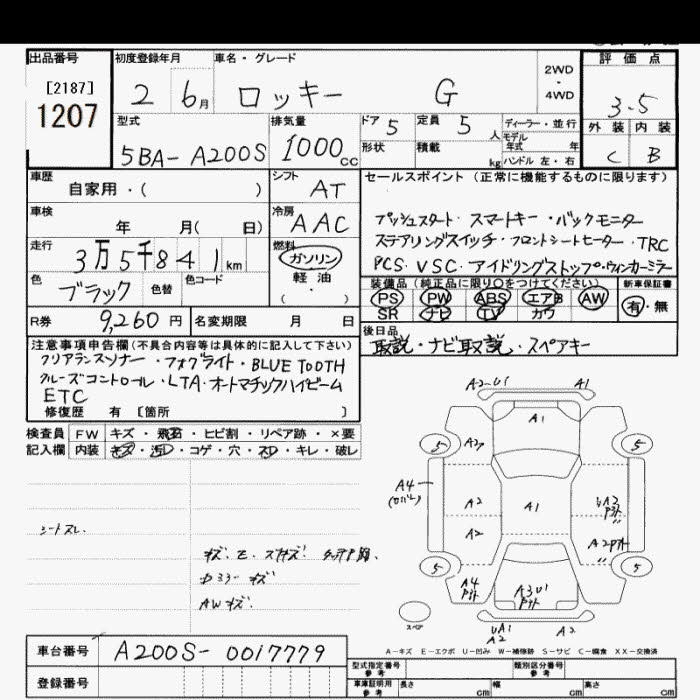 出品番号
[2187]
1207
初度登録年月 車名・グレード
2 6月 ロッキー G
2WD
・
4WD
評価点
3.5
外装 内装
C B
型式
5BA-A200S
排気量
1000cc
ドア 5 定員 5人
形状 積載 kg
ディーラー・並行
モデル年式 年
ハンドル 左・右
車歴
自家用・( )
シフト
AT
車検
年 月( 日)
冷房
AAC
走行
3万5千841km
燃料
ガソリン
軽油
( ・ )
色
ブラック
色替
色コード
R券 9,260円
名変期限 月 日
セールスポイント (正常に機能するものに限ります)
プッシュスタート・スマートキー・バックモニター
ステアリングスイッチ・フロントシートヒーター・TRC
PCS・VSC・アイドリングストップ・ウィンカーミラー
装備品 (純正品に限り○をつけてください)
PS PW ABS エアB AW
SR ナビ TV カワ
新車保証書
有・無
後日品
取説・ナビ取説・スペアキー
注意事項申告欄(不具合内容等は具体的に記入して下さい)
クリアランスソナー・フォグライト・BLUE TOOTH
クルーズコントロール・LTA・オートマチックハイビーム
ETC
修復歴 有 [箇所 ]
検査員 FW キズ・飛石・ヒビ割・リペア跡・×要
記入欄 内装 キズ・汚レ・コゲ・穴・スレ・キレ・破レ
シートスレ
AWキズ
A2・U1 A1
A1
5 A2 5
A4
A2 A1 A2
A2
5 5
A4 A3U1
スペア
UA1
A2 A2
A-キズ E-エクボ U-凹み W-補修跡 S-サビ C-腐食 XX-交換済
車台番号 A200S-0017779
登録番号
型式指定番号
参考
類別区分番号
参考
車庫証明用
参考
長さ cm 幅 cm 高さ cm